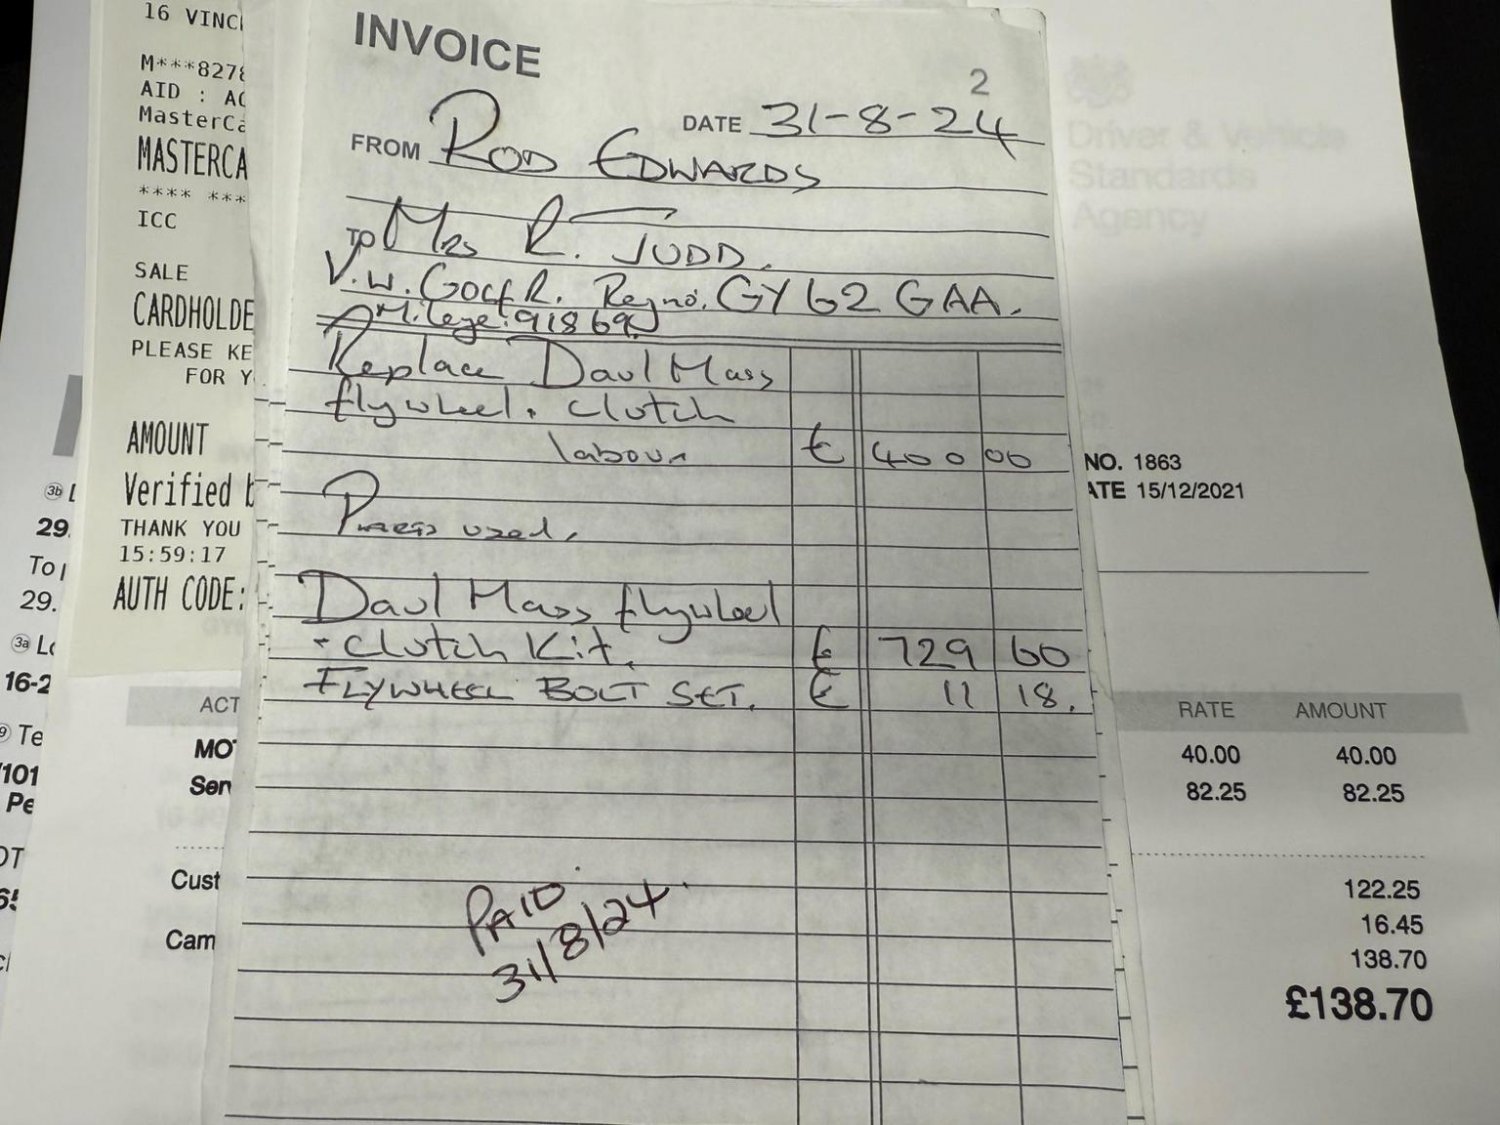 16 VINC
M***8278
AID : A0
MasterCa
MASTERCA
**** ***
ICC
SALE
CARDHOLDE
PLEASE KE
FOR Y
AMOUNT
Verified b
THANK YOU
15:59:17
AUTH CODE:
INVOICE
2
DATE 31-8-24
FROM ROD EDWARDS
TO Mrs R. JUDD.
V.W. Golf R. Reg no. GY62 GAA.
Mileage: 91869
Replace Daul Mass
flywheel. clutch
labour £ 400 00
Parts used.
Daul Mass flywheel
- Clutch Kit. £ 729 60
FLYWHEEL BOLT SET. £ 11 18.
PAID
31/8/24
Driver & Vehicle
Standards
Agency
NO. 1863
ATE 15/12/2021
3b
29
To
29.
3a Lo
16-2
9 Te
/101
Pe
OT
ACT
RATE AMOUNT
MO
40.00 40.00
Ser
82.25 82.25
Cust
122.25
16.45
Cam
138.70
£138.70